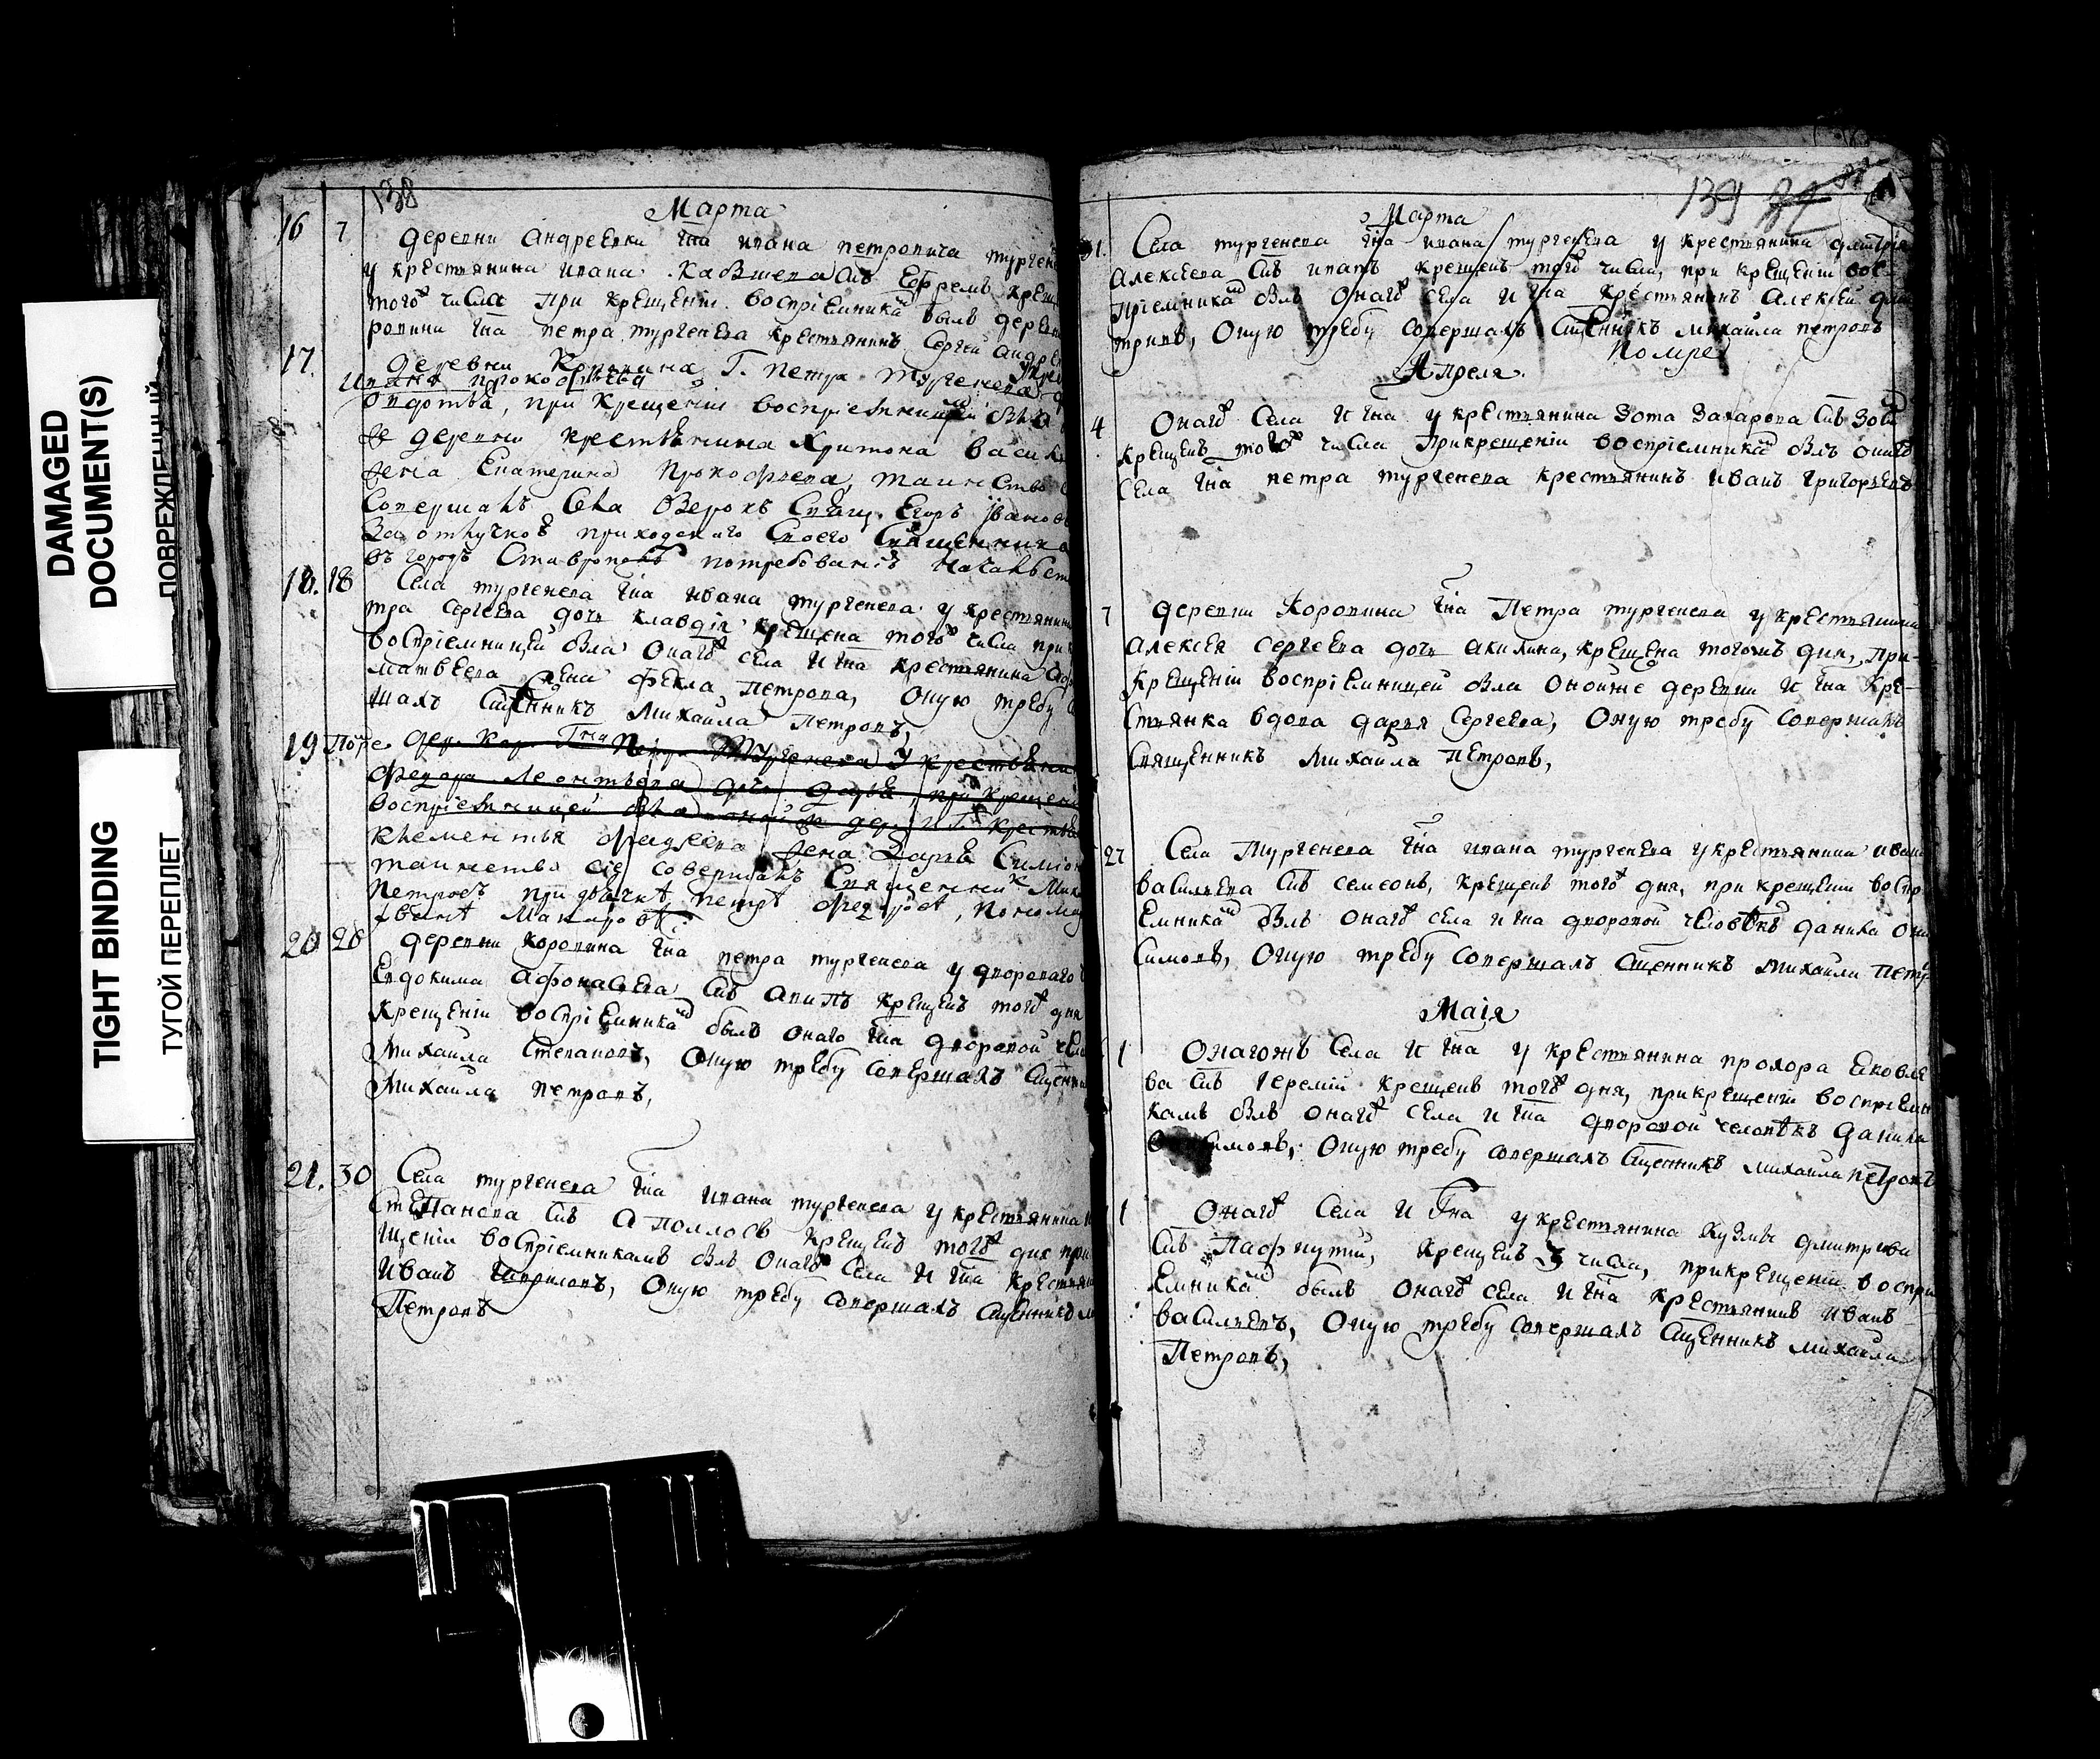 DAMAGED
DOCUMENT(S)
ПОВРЕЖДЕННЫЙ
TIGHT BINDING
ТУГОЙ ПЕРЕПЛЕТ
138
Марта
16 7 деревни Андреевки Гна ивана петровича тургене
у крестьянина ивана снъ Ефремъ крещ
того числа при крещенiи воспрiемникомъ былъ дерев
гна петра тургенева крестьянинъ Сергей Андре
17. деревни Коровина Г. петра Тургенева
прокофьева
при крещенiи
же деревни крестьянина Харитона васил
жена Екатерина Прокофьева, таинство
Совершалъ Села Озерокъ Свящ. Егоръ Iванов
За отлучкою приходскаго своего Священника
въ городъ Ставрополь
18. 18 Села тургенева Гна ивана тургенева у крестьянина
тра Сергеева дочь клавдiя крещена того числа при
воспрiемницей была онагож села и гна крестьянина
матвеева жена Фекла Петрова, Оную требу со
шалъ Сщенникъ Михайла Петровъ,
19 дер. Кор. Гна Петра Тургенева у крестьяни
Федора Леонтьева дочь дарья, при крещенi
воспрiемницей была оной же дер. и Г. крестья
клементья жена Дарья Симiон
таинство сiе совершалъ Священникъ Миха
Петровъ при дьячке петре Федорове, поном
iване Макарове
20 26 деревни коровина Гна петра тургенева у двороваго
Евдокима Афонасьева снъ крещенъ тогож дня
крещенiи воспрiемникомъ былъ онаго гна дворовой чело
Михайла Степановъ, Оную требу совершалъ Сщенни
Михайла петровъ,
21. 30 Села тургенева Гна ивана тургенева у крестьянина
Степанова снъ Аполлосъ крещенъ тогож дне при
щенiи воспрiемникомъ былъ онагож села и гна крестьян
иванъ Гавриловъ, Оную требу совершалъ Сщенникъ М
Петровъ
139
Марта
31. Села тургенева гна ивана тургенева у крестьянина дмитрiя
Алексеева снъ крещенъ того числа, при крещенiи вос-
прiемникомъ былъ Онагож села и гна крестьянинъ Алексей дми
трiевъ, Оную требу совершалъ Сщенникъ михайла петровъ
помре
Апреля.
4 Онагож Села и гна у крестьянина Зота Захарова снъ
крещенъ тогож числа прикрещенiи воспрiемникомъ былъ онагож
Села гна петра тургенева крестьянинъ иванъ григорьевъ
7 деревни Коровина гна Петра тургенева у крестьянина
Алексея сергеева дочь акилина, крещена тогожъ дни, при-
крещенiи воспрiемницей была онойже деревни и гна кре-
стьянка вдова дарья Сергеева, Оную требу совершалъ
Священникъ михайла петровъ,
27 Села Тургенева гна ивана тургенева укрестьянина ивана
василиева снъ семеонъ, крещенъ тогож дня, при крещенiи воспр
емникомъ былъ онагож села и гна дворовой человекъ данила они
симовъ, Оную требу совершалъ Сщенникъ Михайла Петр
Маiя
1 Онагожъ Села и гна у крестьянина прохора
снъ Iеремiй крещенъ тогож дня, прикрещенiи воспрiемни
камъ былъ онагож села и гна дворовой человекъ данила
симовъ, Оную требу совершалъ Сщенникъ михайла петровъ
1 Онагож Села и гна у крестьянина Кузмы дмитрива
снъ Пафнутiй, крещенъ 3 числа, прикрещенiи воспри
емникомъ былъ онагож села и гна крестьянинъ иванъ
василиевъ, Оную требу совершалъ Сщенникъ михайла
Петровъ,